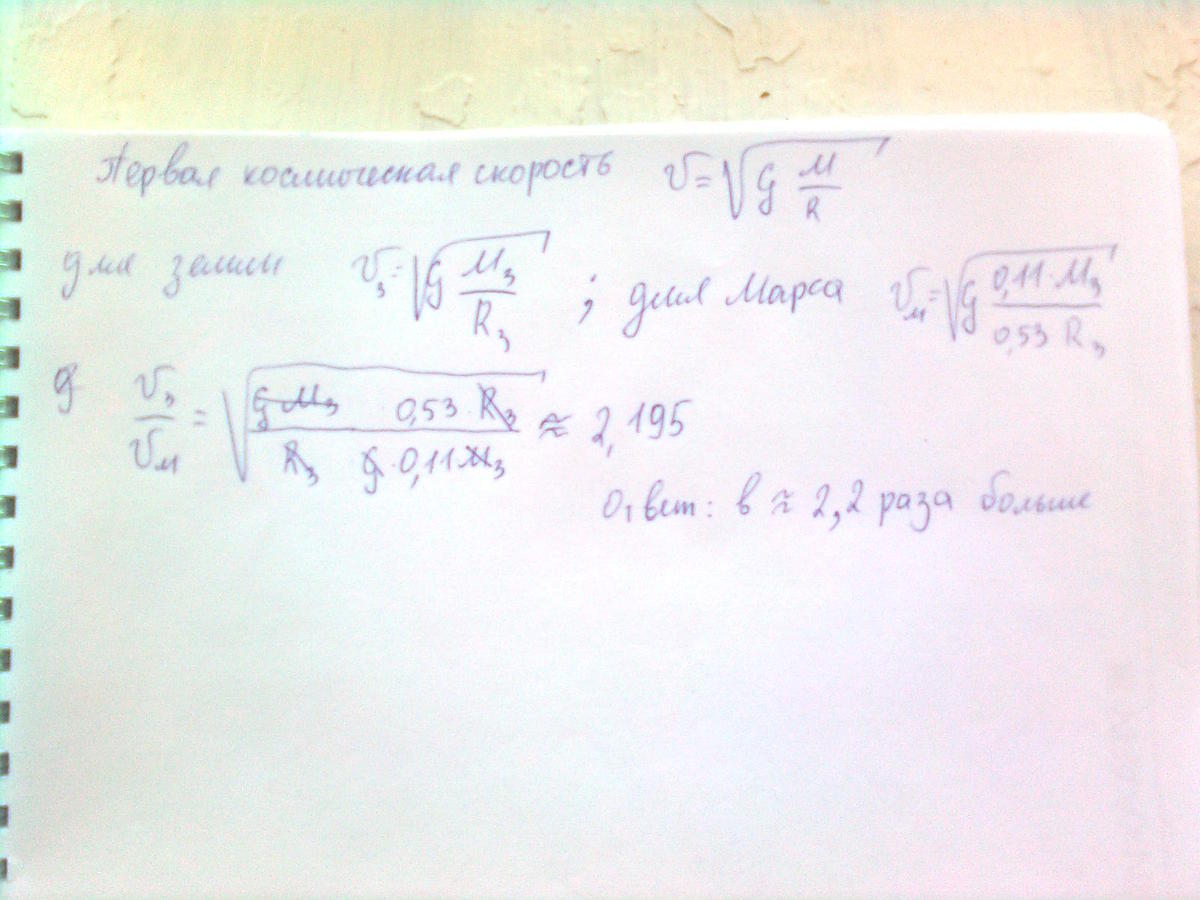 Первая космическая скорость v = √(G M/R)
для земли v₃ = √(G M₃/R₃) ; для Марса vₘ = √(G 0,11·M₃/0,53 R₃)
v₃/vₘ = √(G M₃ 0,53·R₃/R₃ G·0,11 M₃) ≈ 2,195
Ответ: в ≈ 2,2 раза больше